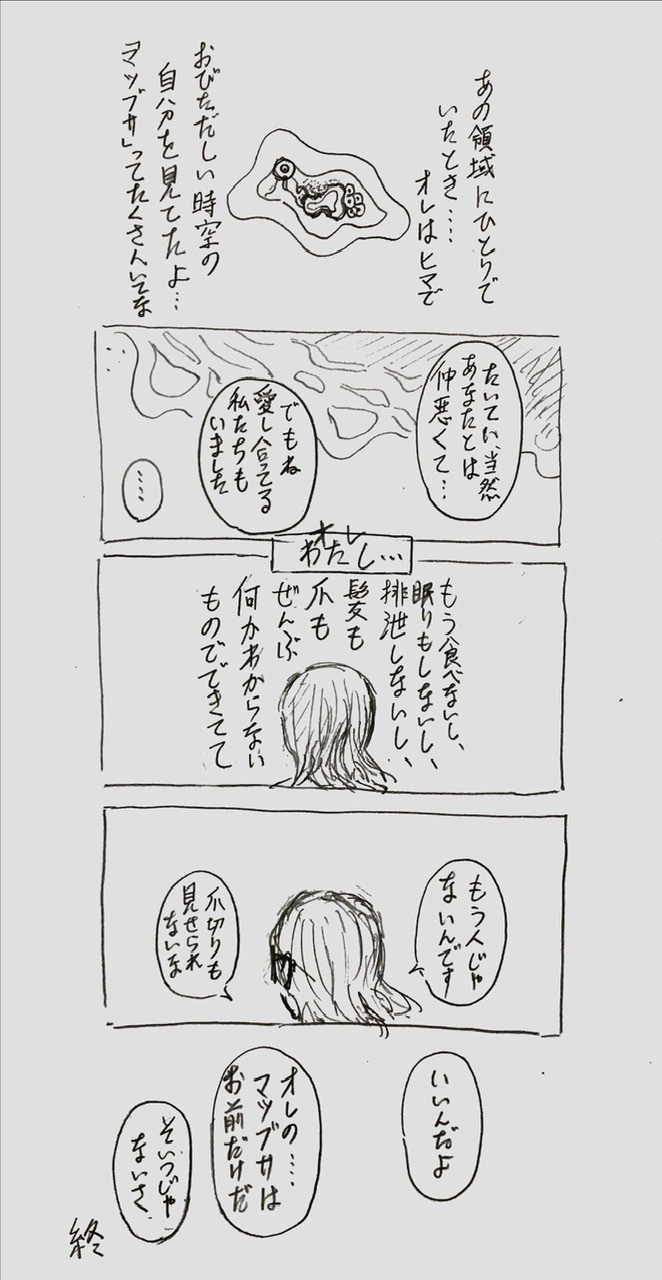 あの領域にひとりで
いたとき……
オレはヒマで
おびただしい時空の
自分を見てたよ…
マツブサってたくさんいてな
たいてい、当然
あなたとは
仲悪くて…
でもね
愛し合ってる
私たちも
いました
…
オレ
わたし…
もう食べないし、
眠りもしないし、
排泄しないし、
髪も
爪も
ぜんぶ
何かわからない
ものでできてて
もう人じゃ
ないんです
爪切りも
見せられ
ないな
いいんだよ
オレの……
マツブサは
お前だけだ
そいつじゃ
ないさ
終